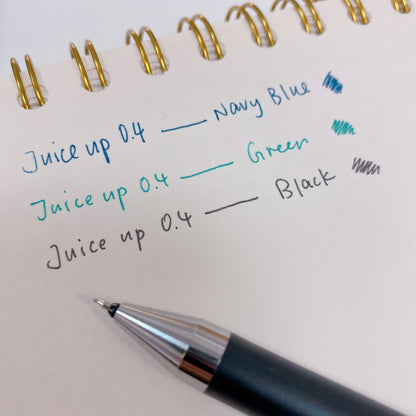 Juice up 0.4 — Navy Blue
Juice up 0.4 — Green
Juice up 0.4 — Black